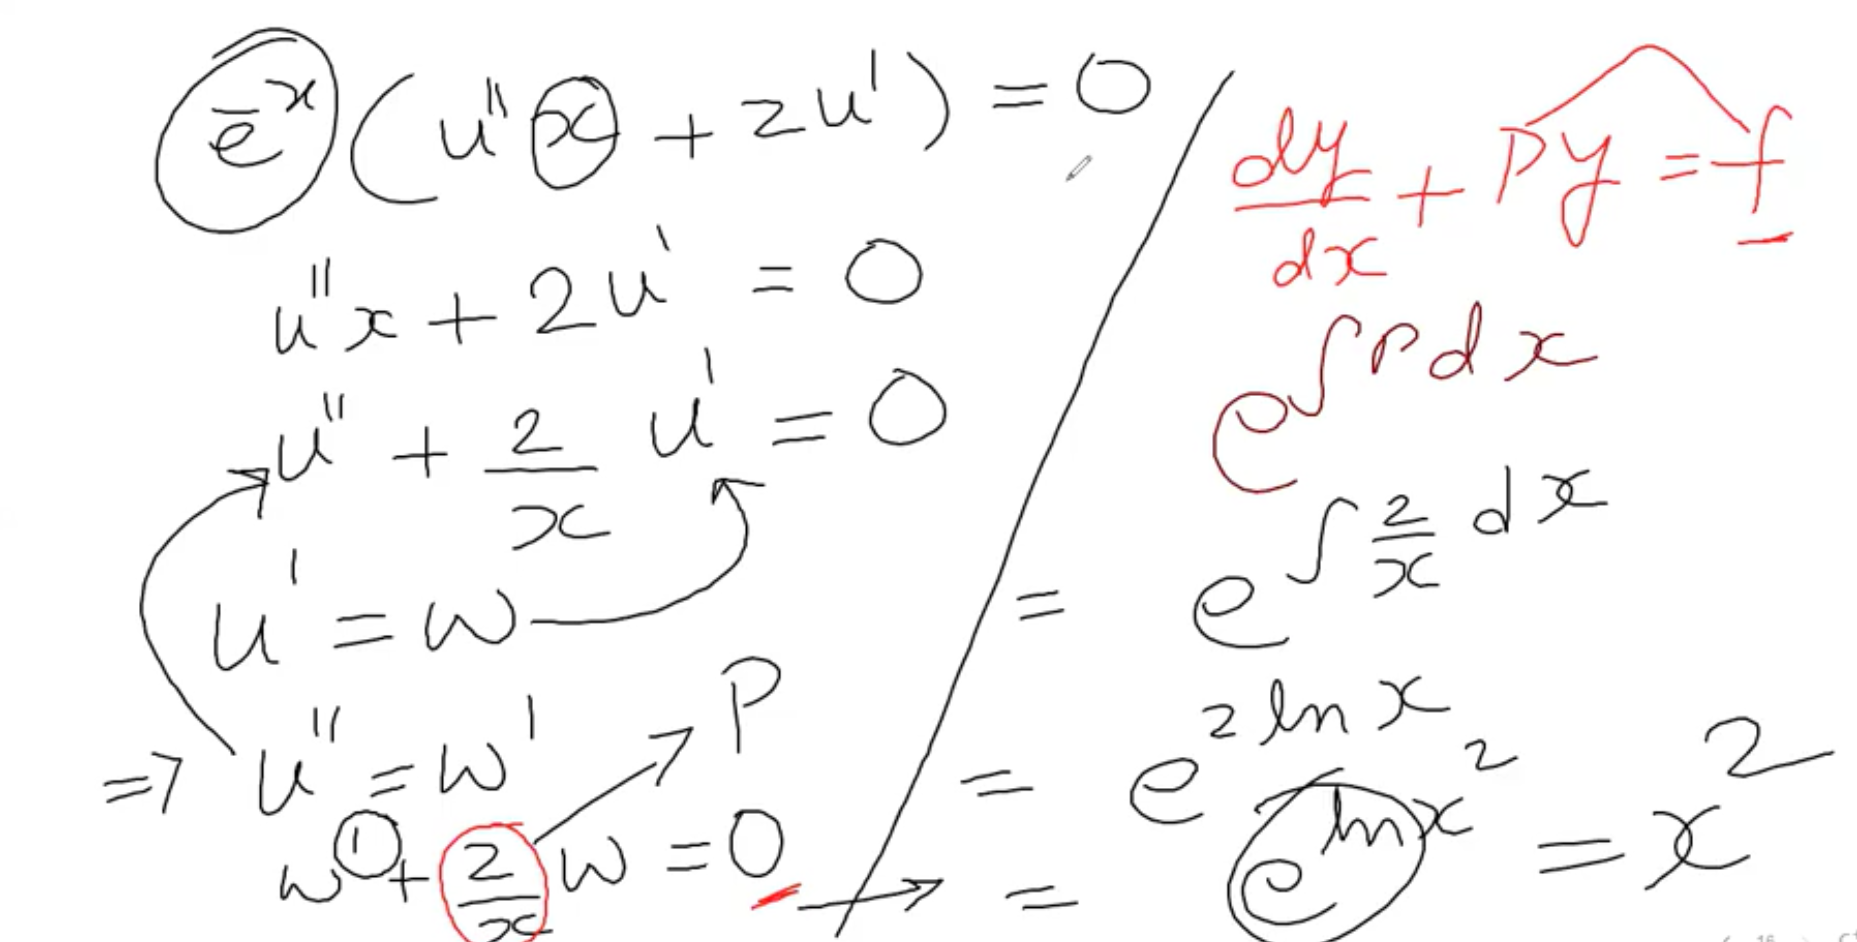 e⁻ˣ (u''x + 2u') = 0
u''x + 2u' = 0
u'' + 2/x u' = 0
u' = w
⇒ u'' = w'
P
w' + 2/x w = 0
dy/dx + Py = f
e^∫Pdx
= e^∫2/x dx
= e^2lnx
= e^lnx² = x²